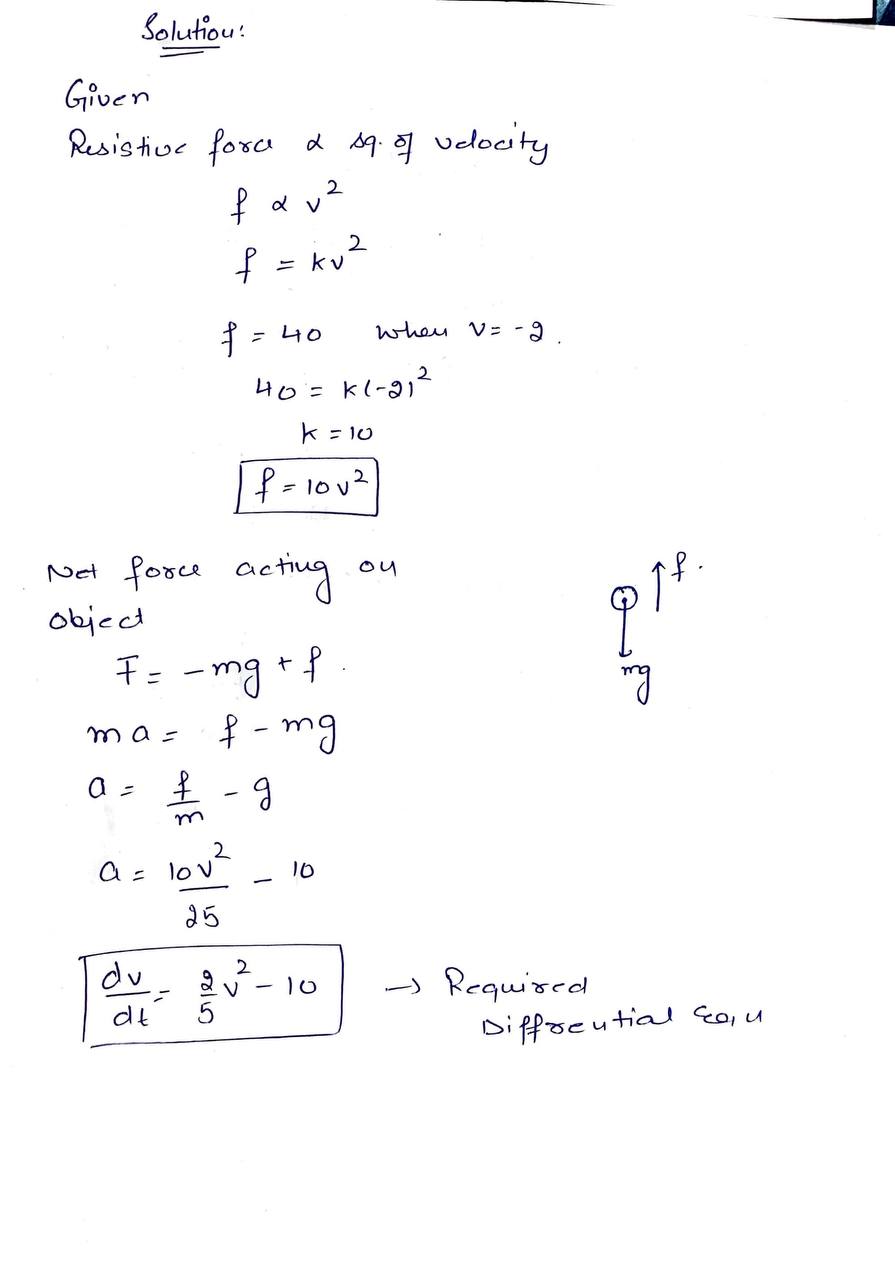 Solution:
Given
Resistive force α sq. of velocity
f α v²
f = kv²
f = 40 when v = -2.
40 = k(-2)²
k = 10
f = 10v²
Net force acting on
object
F = -mg + f.
ma = f - mg
a = f/m - g
a = 10v²/25 - 10
dv/dt = 2/5 v² - 10 → Required
Diffrential Eq,n
f.
mg